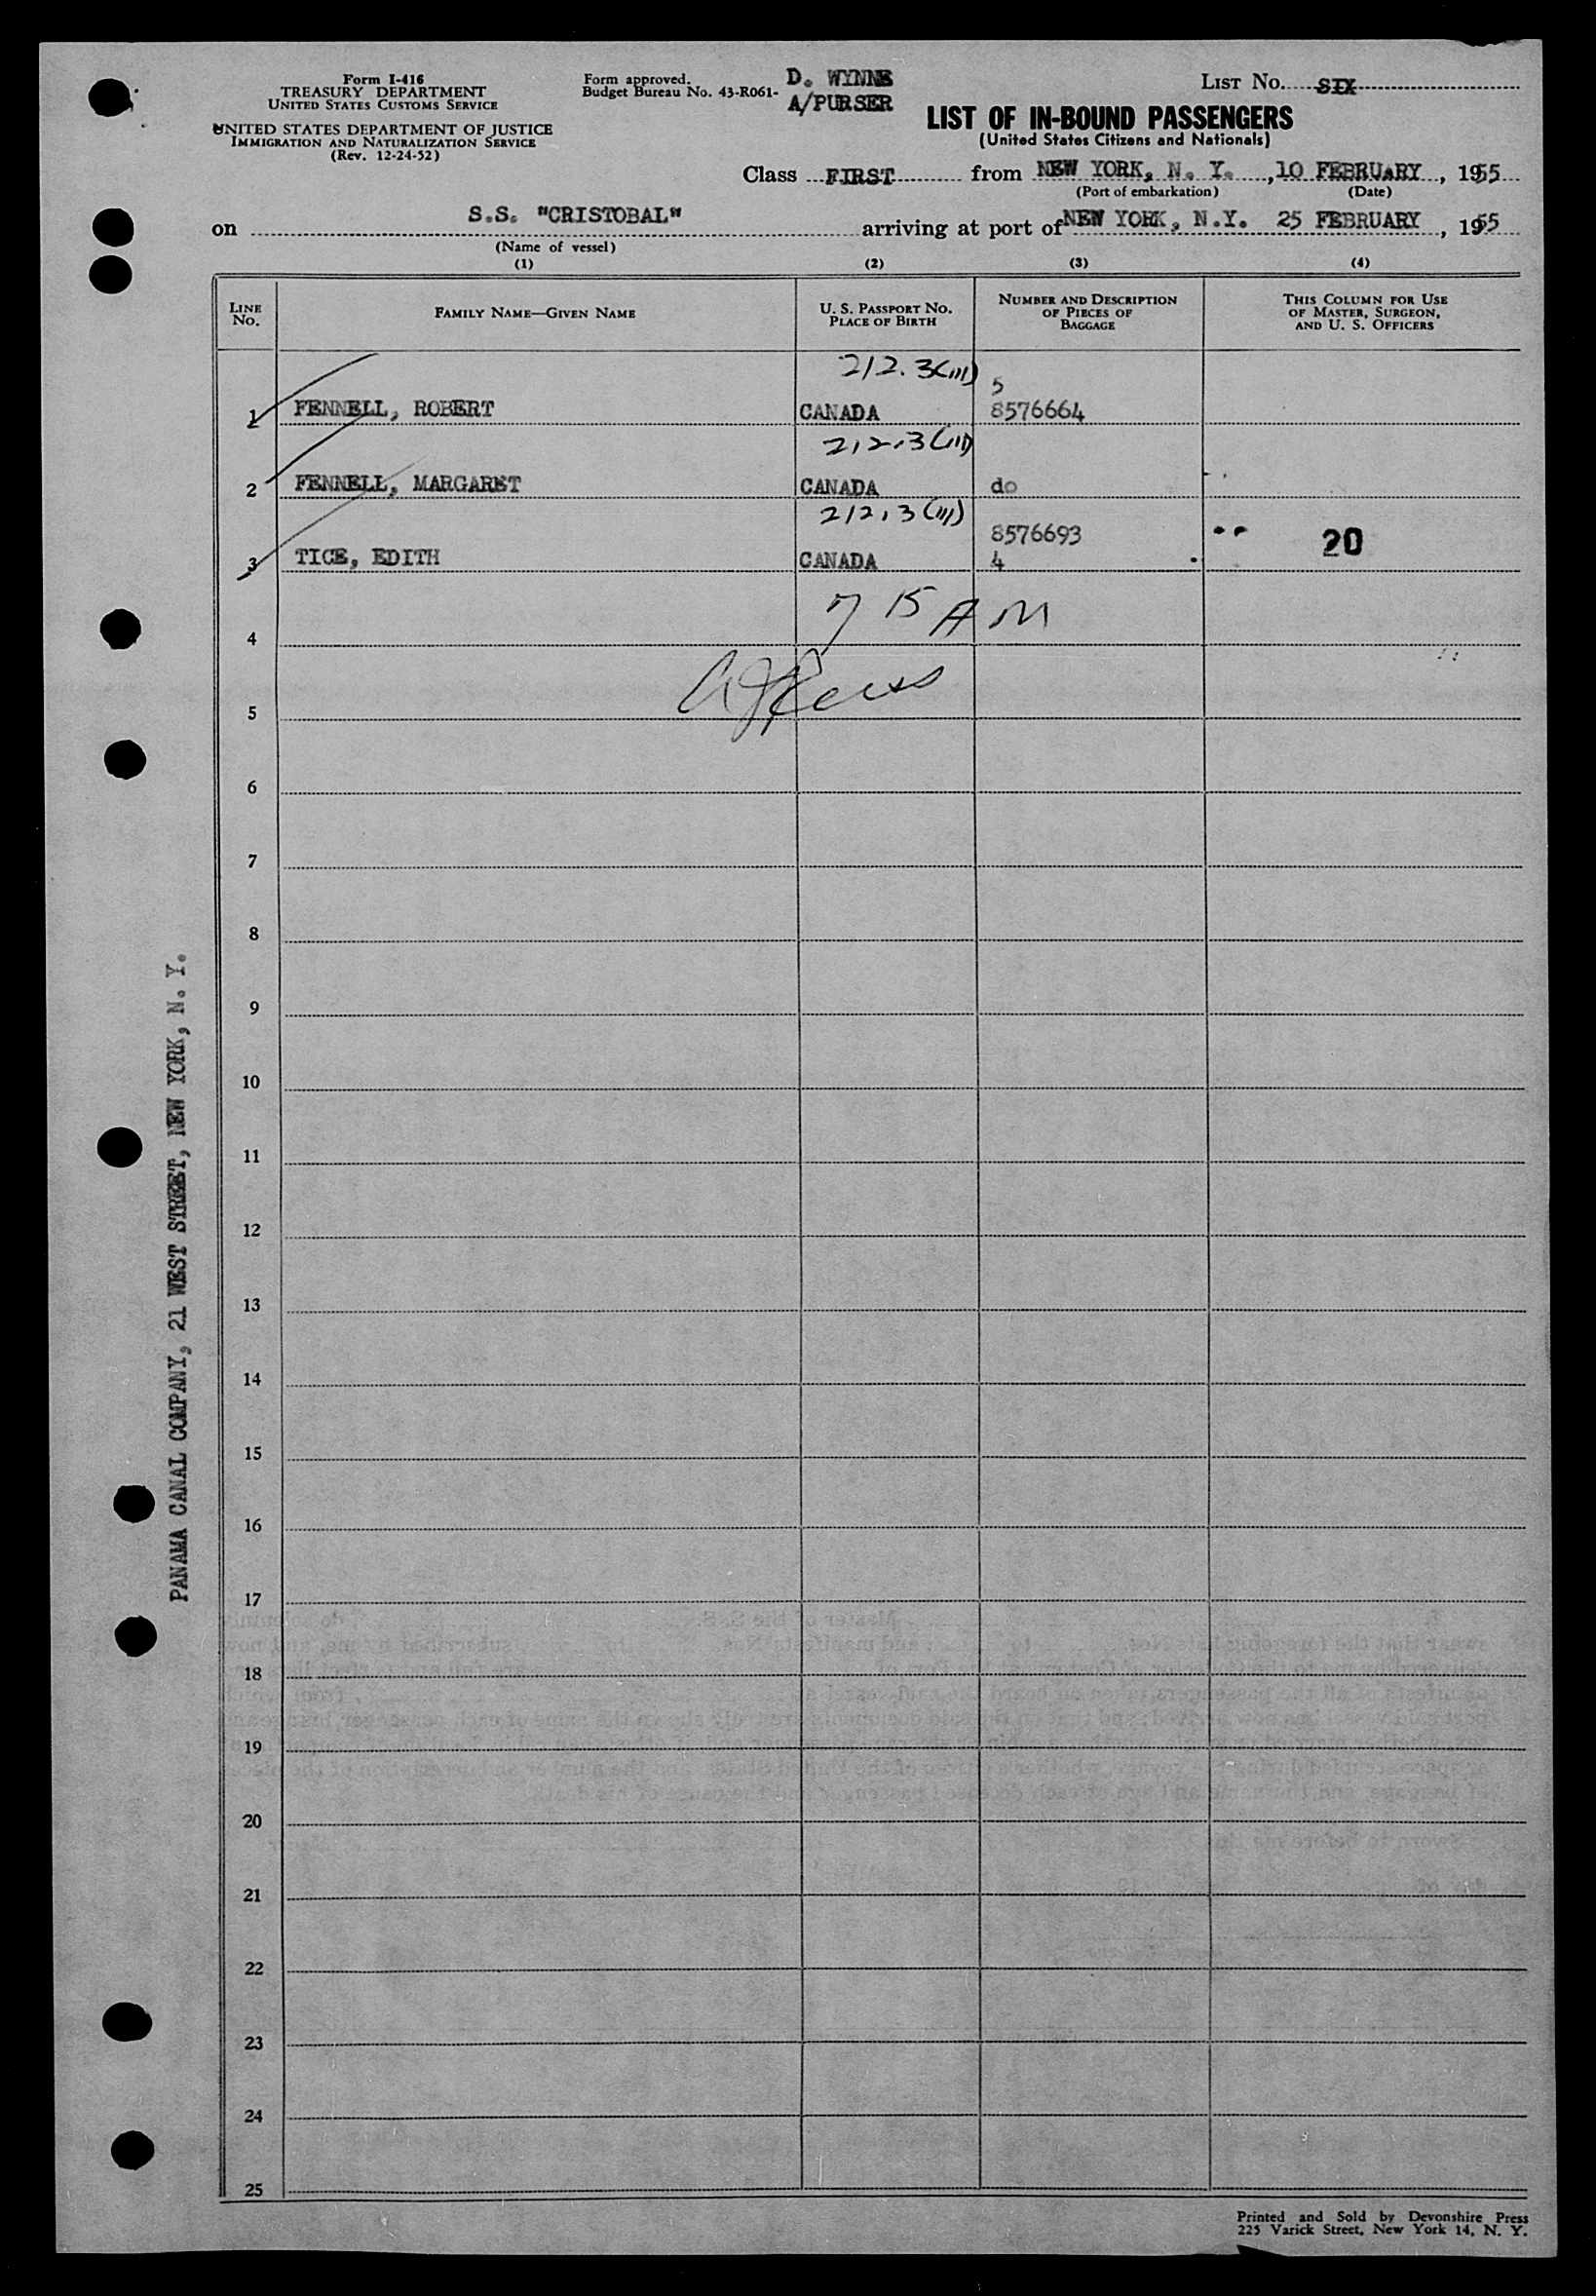 Form I-416
TREASURY DEPARTMENT
UNITED STATES CUSTOMS SERVICE
UNITED STATES DEPARTMENT OF JUSTICE
IMMIGRATION AND NATURALIZATION SERVICE
(Rev. 12-24-52)
Form approved.
Budget Bureau No. 43-R061-
D. WYNNE
A/PURSER
LIST NO. SIX
LIST OF IN-BOUND PASSENGERS
(United States Citizens and Nationals)
Class FIRST from NEW YORK, N. Y. , 10 FEBRUARY , 1955
(Port of embarkation) (Date)
on S.S. "CRISTOBAL" arriving at port of NEW YORK, N.Y. 25 FEBRUARY , 1955
(Name of vessel)
(1) (2) (3) (4)
LINE NO.
FAMILY NAME—GIVEN NAME
U. S. PASSPORT NO.
PLACE OF BIRTH
NUMBER AND DESCRIPTION
OF PIECES OF
BAGGAGE
THIS COLUMN FOR USE
OF MASTER, SURGEON,
AND U. S. OFFICERS
212.3(III)
5
1 FENNELL, ROBERT CANADA 8576664
212.3(III)
2 FENNELL, MARGARET CANADA do
212.3(III)
8576693 20
3 TICE, EDITH CANADA 4
7 15 AM
4
5
6
7
8
9
10
11
12
13
14
15
16
17
18
19
20
21
22
23
24
25
PANAMA CANAL COMPANY, 21 WEST STREET, NEW YORK, N. Y.
Printed and Sold by Devonshire Press
225 Varick Street, New York 14, N. Y.